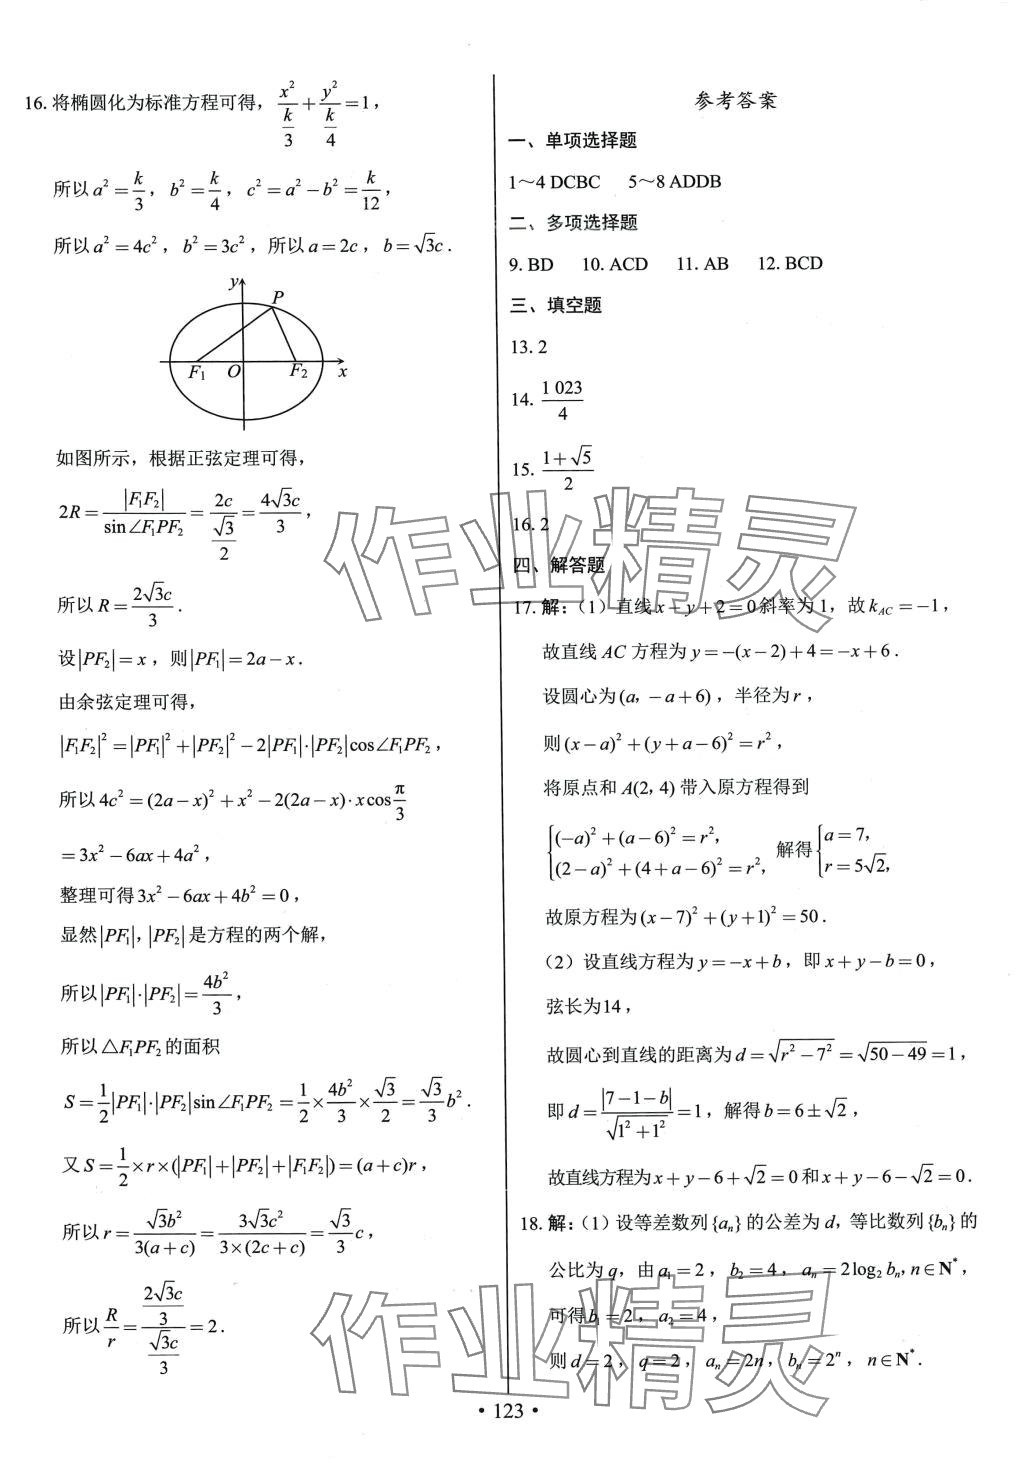 16. 将椭圆化为标准方程可得，x²/(k/3) + y²/(k/4) = 1，
所以 a² = k/3，b² = k/4，c² = a² − b² = k/12，
所以 a² = 4c²，b² = 3c²，所以 a = 2c，b = √3c．
y
P
F₁ O F₂ x
如图所示，根据正弦定理可得，
2R = |F₁F₂|/sin∠F₁PF₂ = 2c/(√3/2) = 4√3c/3，
所以 R = 2√3c/3．
设|PF₂| = x，则|PF₁| = 2a − x．
由余弦定理可得，
|F₁F₂|² = |PF₁|² + |PF₂|² − 2|PF₁|·|PF₂|cos∠F₁PF₂，
所以 4c² = (2a − x)² + x² − 2(2a − x)·x cos π/3
= 3x² − 6ax + 4a²，
整理可得 3x² − 6ax + 4b² = 0，
显然|PF₁|，|PF₂|是方程的两个解，
所以|PF₁|·|PF₂| = 4b²/3，
所以 △F₁PF₂ 的面积
S = 1/2|PF₁|·|PF₂|sin∠F₁PF₂ = 1/2 × 4b²/3 × √3/2 = √3/3 b²．
又 S = 1/2 × r × (|PF₁| + |PF₂| + |F₁F₂|) = (a + c)r，
所以 r = √3b²/3(a + c) = 3√3c²/3×(2c + c) = √3/3 c，
所以 R/r = (2√3c/3)/(√3c/3) = 2．
参考答案
一、单项选择题
1～4 DCBC 5～8 ADDB
二、多项选择题
9. BD 10. ACD 11. AB 12. BCD
三、填空题
13. 2
14. 1 023/4
15. (1+√5)/2
16. 2
四、解答题
17. 解：（1）直线 x − y + 2 = 0 斜率为 1，故 k_AC = −1，
故直线 AC 方程为 y = −(x − 2) + 4 = −x + 6．
设圆心为 (a，−a + 6)，半径为 r，
则 (x − a)² + (y + a − 6)² = r²，
将原点和 A(2, 4) 带入原方程得到
{(−a)² + (a − 6)² = r², (2 − a)² + (4 + a − 6)² = r², 解得 {a = 7, r = 5√2,
故原方程为 (x − 7)² + (y + 1)² = 50．
（2）设直线方程为 y = −x + b，即 x + y − b = 0，
弦长为 14，
故圆心到直线的距离为 d = √(r² − 7²) = √(50 − 49) = 1，
即 d = |7 − 1 − b|/√(1² + 1²) = 1，解得 b = 6 ± √2，
故直线方程为 x + y − 6 + √2 = 0 和 x + y − 6 − √2 = 0．
18. 解：（1）设等差数列 {aₙ} 的公差为 d，等比数列 {bₙ} 的
公比为 q，由 a₁ = 2，b₂ = 4，aₙ = 2log₂ bₙ, n ∈ N*，
可得 b₁ = 2，a₂ = 4，
则 d = 2，q = 2，aₙ = 2n，bₙ = 2ⁿ，n ∈ N*．
作业精灵
作业精灵
• 123 •